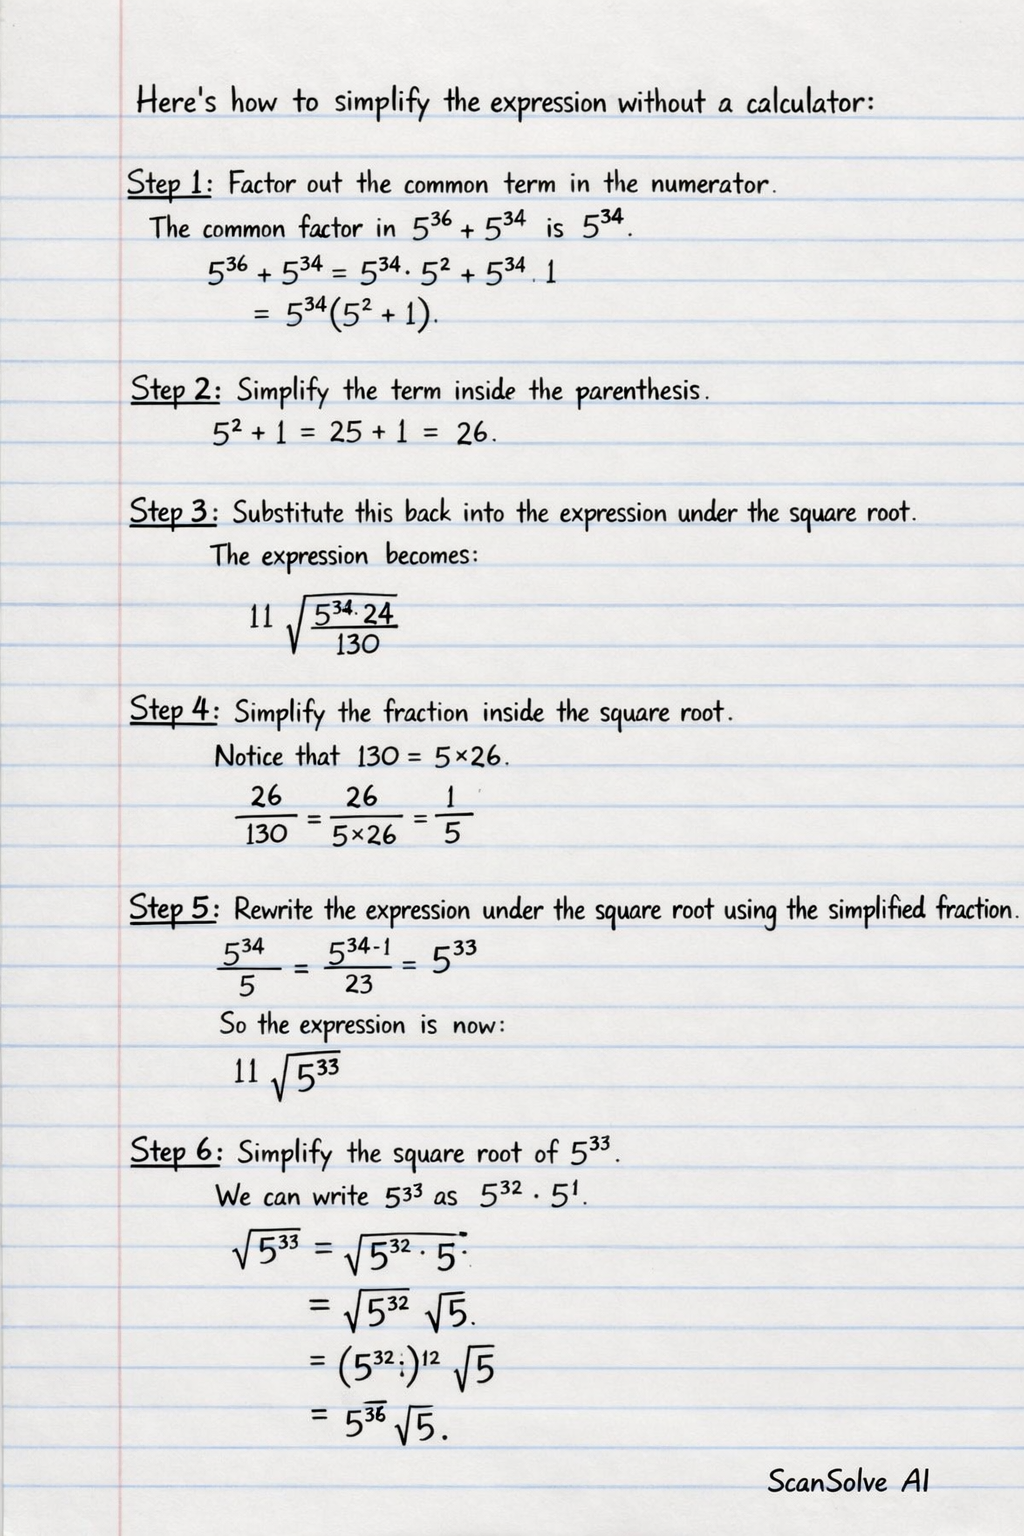 Here's how to simplify the expression without a calculator:
Step 1: Factor out the common term in the numerator.
The common factor in 5³⁶ + 5³⁴ is 5³⁴.
5³⁶ + 5³⁴ = 5³⁴· 5² + 5³⁴ . 1
= 5³⁴(5² + 1).
Step 2: Simplify the term inside the parenthesis.
5² + 1 = 25 + 1 = 26.
Step 3: Substitute this back into the expression under the square root.
The expression becomes:
11 √(5³⁴·24 / 130)
Step 4: Simplify the fraction inside the square root.
Notice that 130 = 5×26.
26/130 = 26/(5×26) = 1/5
Step 5: Rewrite the expression under the square root using the simplified fraction.
5³⁴/5 = 5³⁴⁻¹/23 = 5³³
So the expression is now:
11 √5³³
Step 6: Simplify the square root of 5³³.
We can write 5³³ as 5³² · 5¹.
√5³³ = √(5³² · 5)
= √5³² √5.
= (5³²:)¹² √5
= 5³⁶ √5.
ScanSolve AI